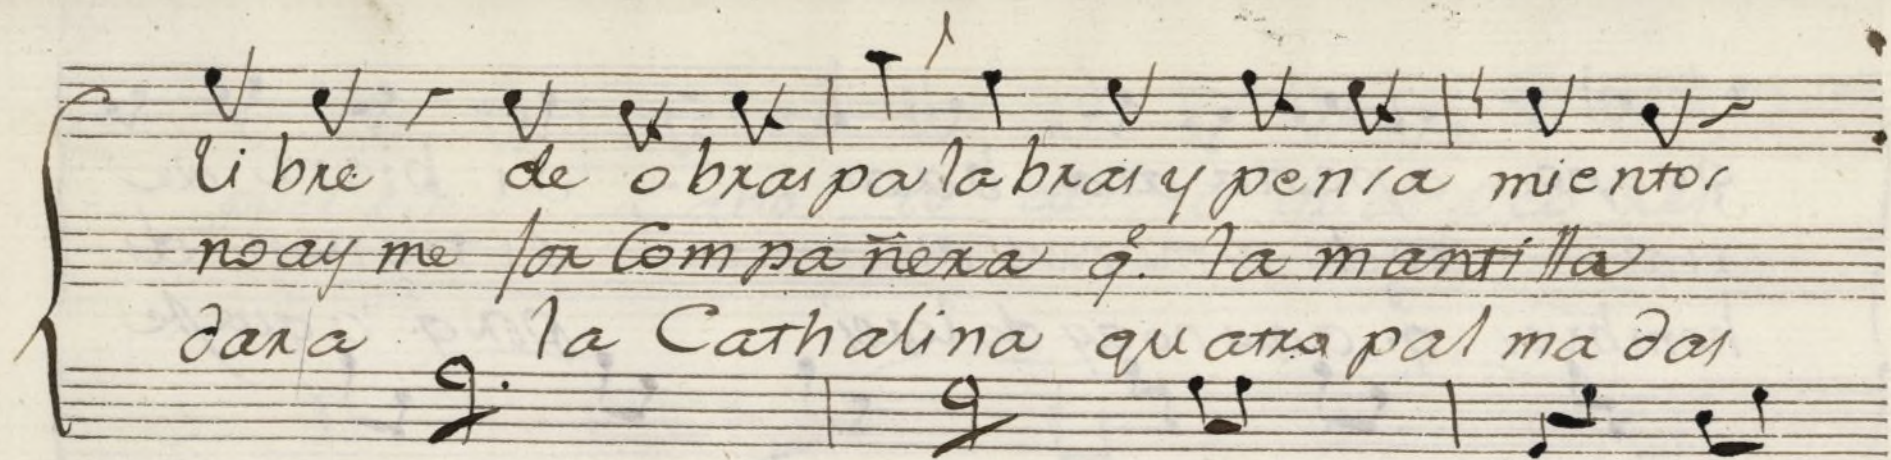 libre de obras palabras y pensamientos
no ay mejor Compañera q.e la mantilla
dara la Cathalina quatro palmadas